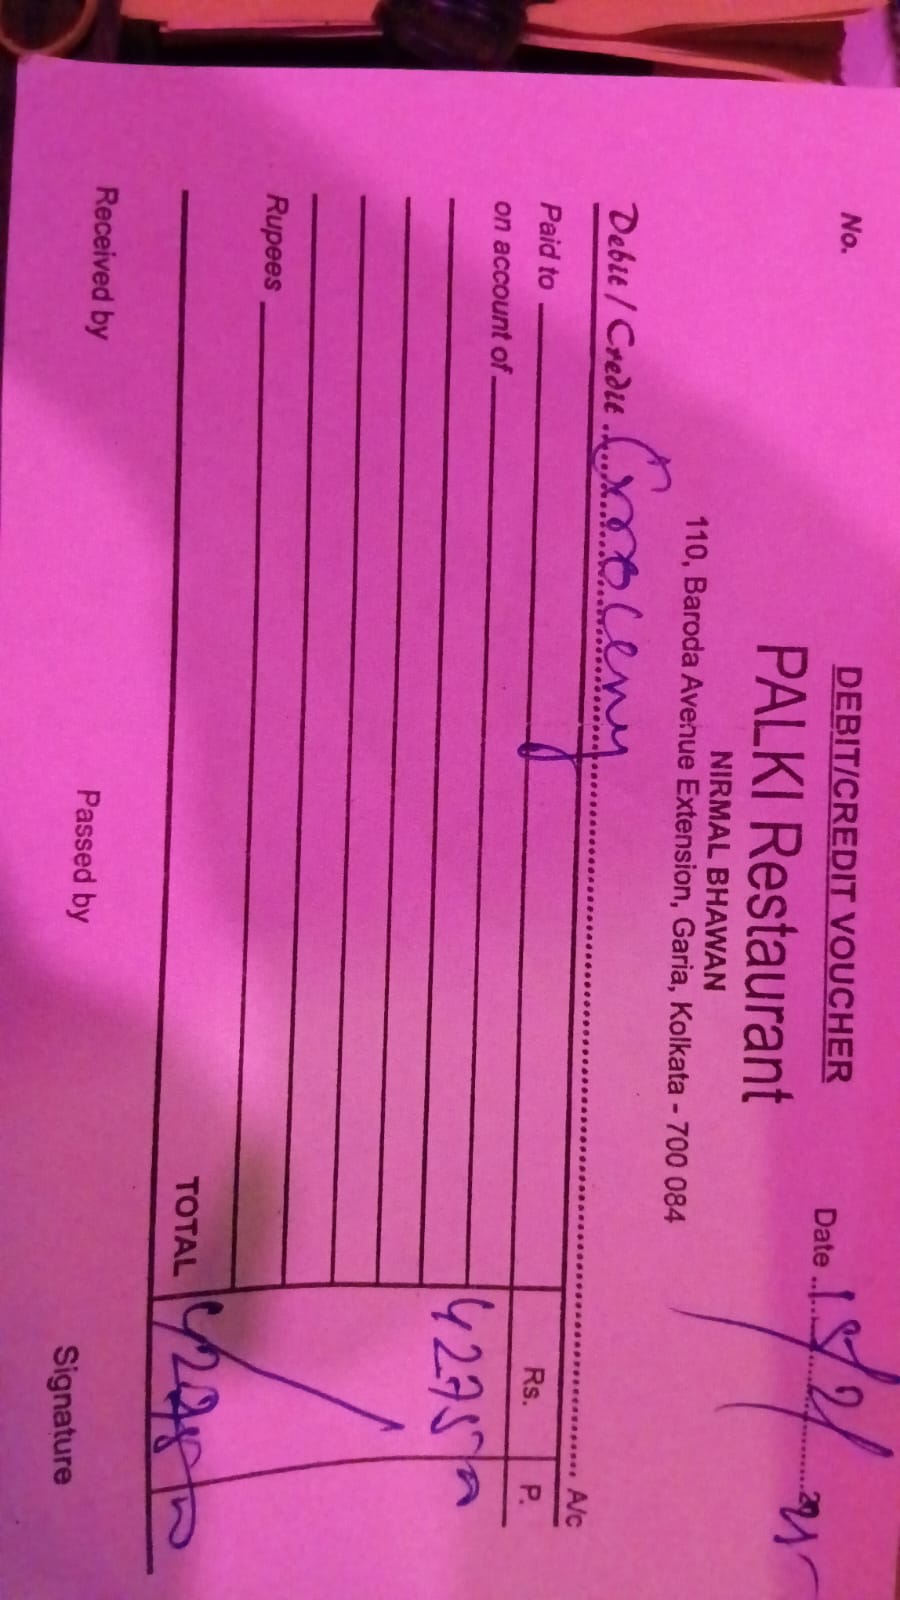 DEBIT/CREDIT VOUCHER
No.
PALKI Restaurant
Date
NIRMAL BHAWAN
110, Baroda Avenue Extension, Garia, Kolkata - 700 084
Debit / Credit Grocery A/c
Paid to Rs. P.
on account of
4275
Rupees
TOTAL
Received by Passed by Signature